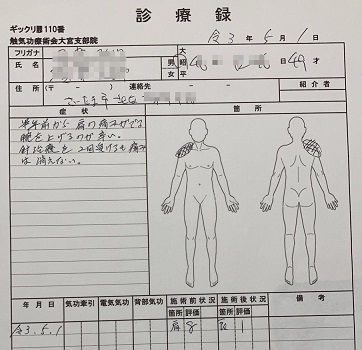 診療録
ギックリ腰110番
触気功療術会大宮支部院
令3年5月1日
フリガナ
氏名
男 女
大 昭 平
49才
住所 (〒 - ) 連絡先 紹介者
さいたま市
症状 箇所
半年前から肩の痛みがでる
腕を上げるのが辛い。
針治療を2回受けても痛み
は消えない。
年月日 気功牽引 電気気功 背部気功 施術前状況 施術後状況 備考
箇所 評価 箇所 評価
令3.5.1 肩 8 肩 1